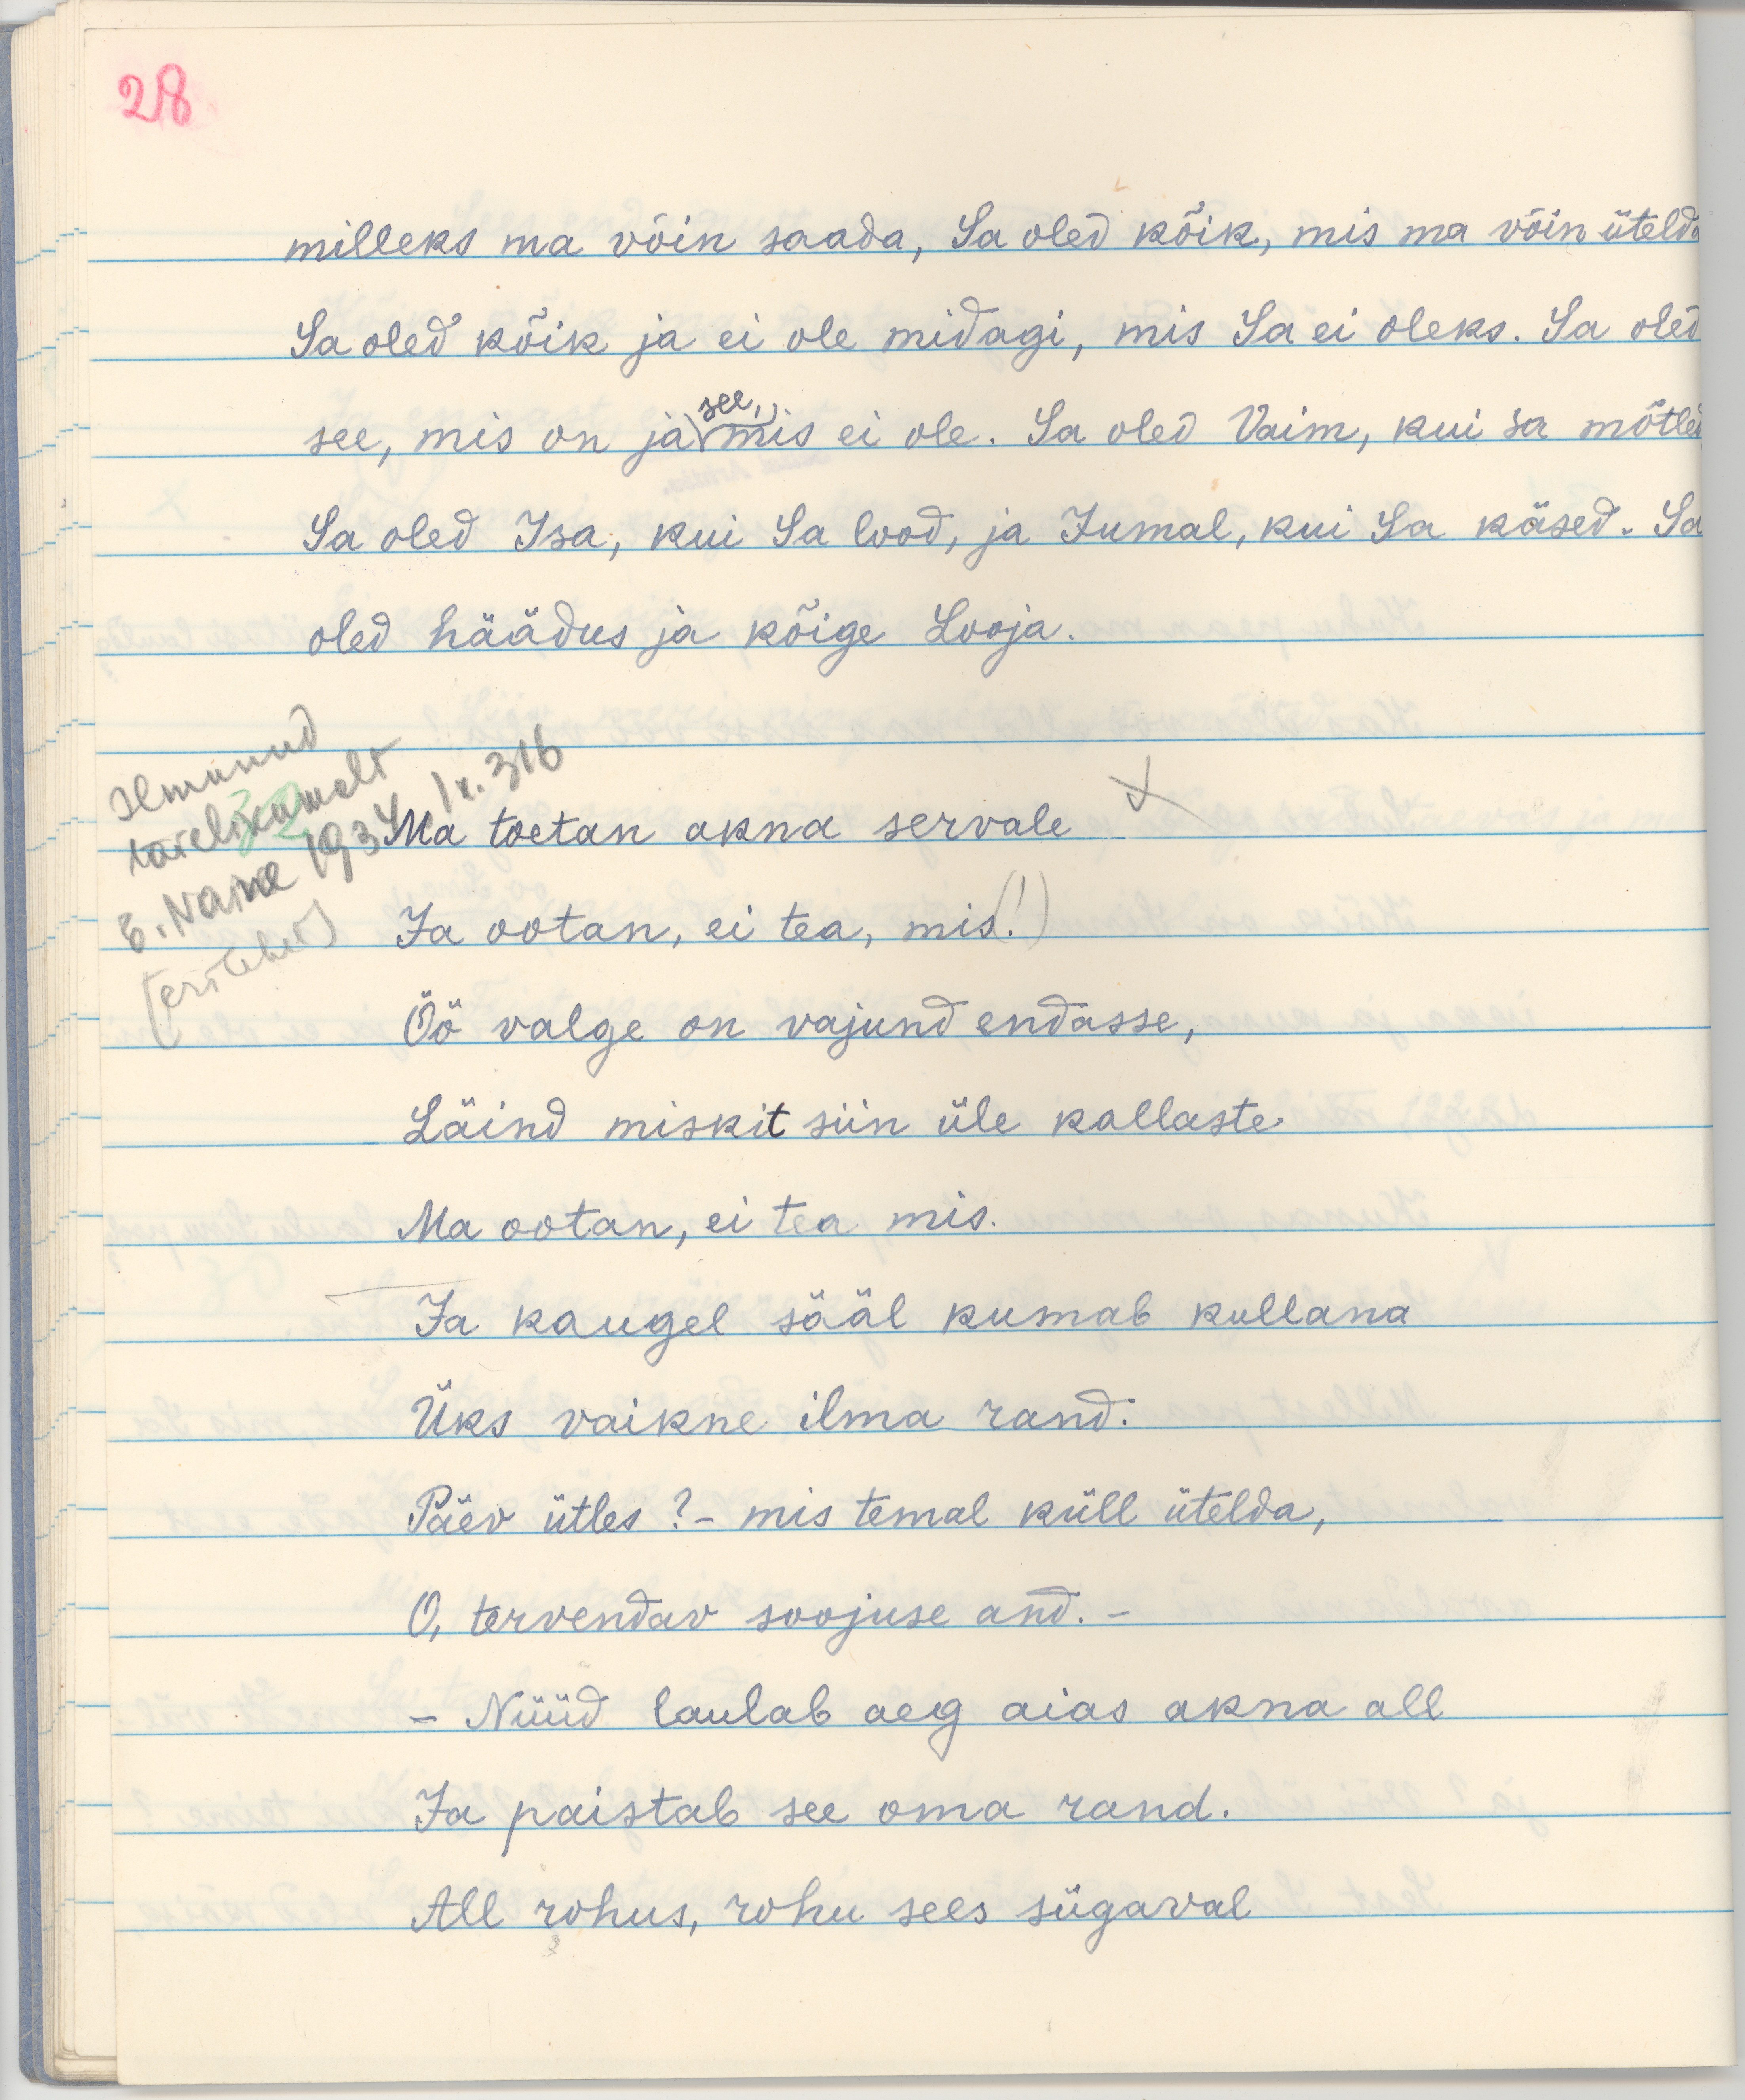 28
milleks ma võin saada, Sa oled kõik, mis ma võin ütelda
Sa oled kõik ja ei ole midagi, mis Sa ei oleks. Sa oled
see,
see, mis on ja mis ei ole. Sa oled Vaim, kui sa mõtled
Sa oled Isa, kui Sa lood, ja Jumal, kui Sa käsed. Sa
oled häädus ja kõige Looja.
Ilmunud
täielikumalt
E. Naine 1934 lk. 316
32
Ma toetan akna servale
Ja ootan, ei tea, mis(!)
Öö valge on vajund endasse,
Läind miskit siin üle kallaste
Ma ootan, ei tea mis.
Ja kaugel sääl kumab kullana
Üks vaikne ilma rand:
Päev ütles? – mis temal küll ütelda,
O, tervendav soojuse and. –
– Nüüd laulab aeg aias akna all
Ja paistab see oma rand.
All rohus, rohu sees sügaval